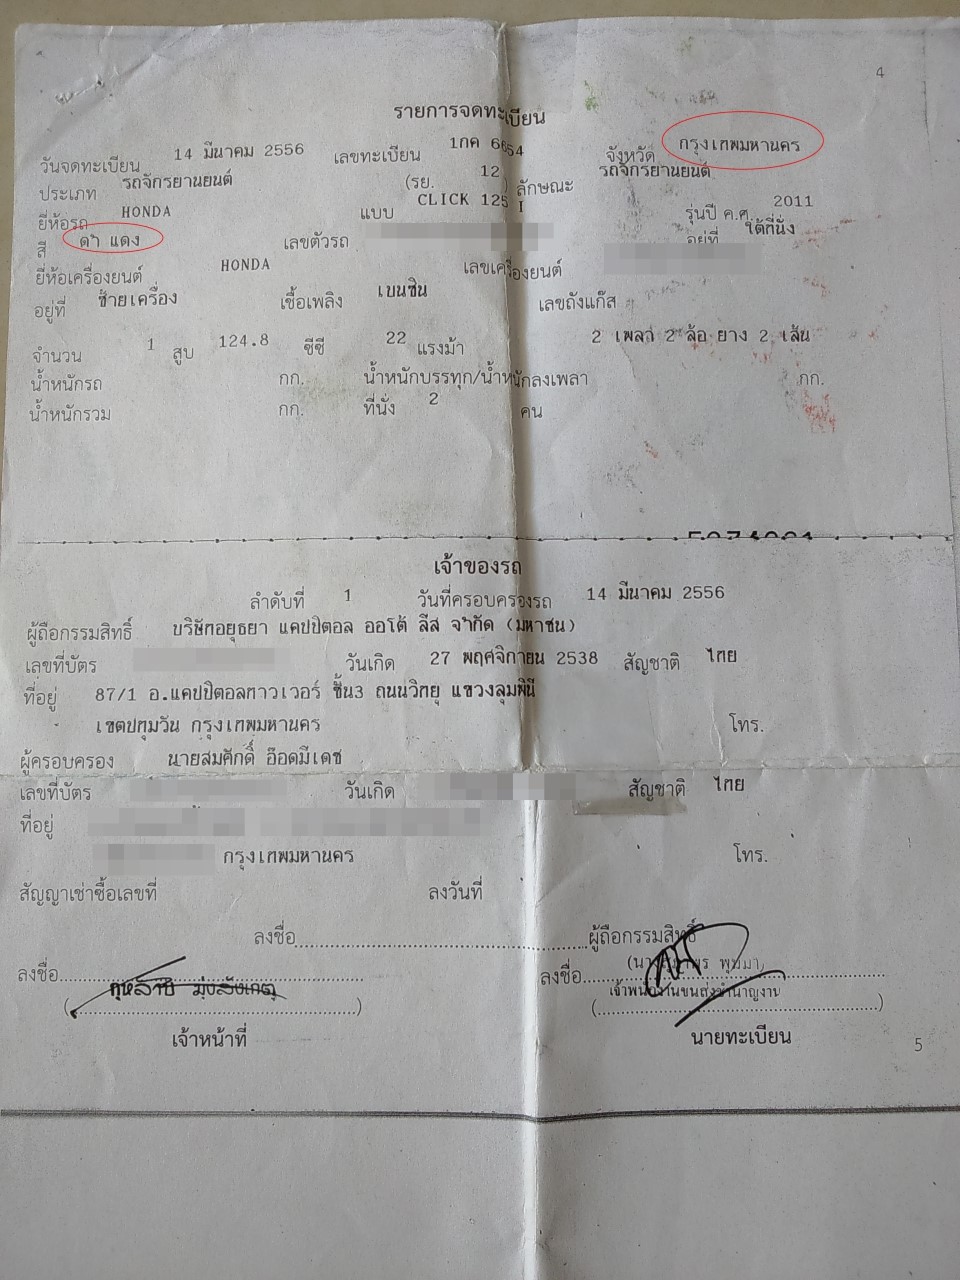 4
รายการจดทะเบียน
วันจดทะเบียน 14 มีนาคม 2556 เลขทะเบียน 1กค 6654 จังหวัด กรุงเทพมหานคร
ประเภท รถจักรยานยนต์ (รย. 12 ) ลักษณะ รถจักรยานยนต์
ยี่ห้อรถ HONDA แบบ CLICK 125 I รุ่นปี ค.ศ. 2011
สี ดำ แดง เลขตัวรถ อยู่ที่ ใต้ที่นั่ง
ยี่ห้อเครื่องยนต์ HONDA เลขเครื่องยนต์
อยู่ที่ ซ้ายเครื่อง เชื้อเพลิง เบนซิน เลขถังแก๊ส
จำนวน 1 สูบ 124.8 ซีซี 22 แรงม้า 2 เพลา 2 ล้อ ยาง 2 เส้น
น้ำหนักรถ กก. น้ำหนักบรรทุก/น้ำหนักลงเพลา กก.
น้ำหนักรวม กก. ที่นั่ง 2 คน
เจ้าของรถ
ลำดับที่ 1 วันที่ครอบครองรถ 14 มีนาคม 2556
ผู้ถือกรรมสิทธิ์ บริษัทอยุธยา แคปปิตอล ออโต้ ลีส จำกัด (มหาชน)
เลขที่บัตร วันเกิด 27 พฤศจิกายน 2538 สัญชาติ ไทย
ที่อยู่ 87/1 อ.แคปปิตอลทาวเวอร์ ชั้น3 ถนนวิทยุ แขวงลุมพินี
เขตปทุมวัน กรุงเทพมหานคร โทร.
ผู้ครอบครอง นายสมศักดิ์ อ๊อดมีเดช
เลขที่บัตร วันเกิด สัญชาติ ไทย
ที่อยู่
กรุงเทพมหานคร โทร.
สัญญาเช่าซื้อเลขที่ ลงวันที่
ลงชื่อ ผู้ถือกรรมสิทธิ์
ลงชื่อ ลงชื่อ
กุหลาบ มุ่งสังเกตุ พุ่มมา)
เจ้าพนักงานขนส่งชำนาญงาน
เจ้าหน้าที่ นายทะเบียน
5